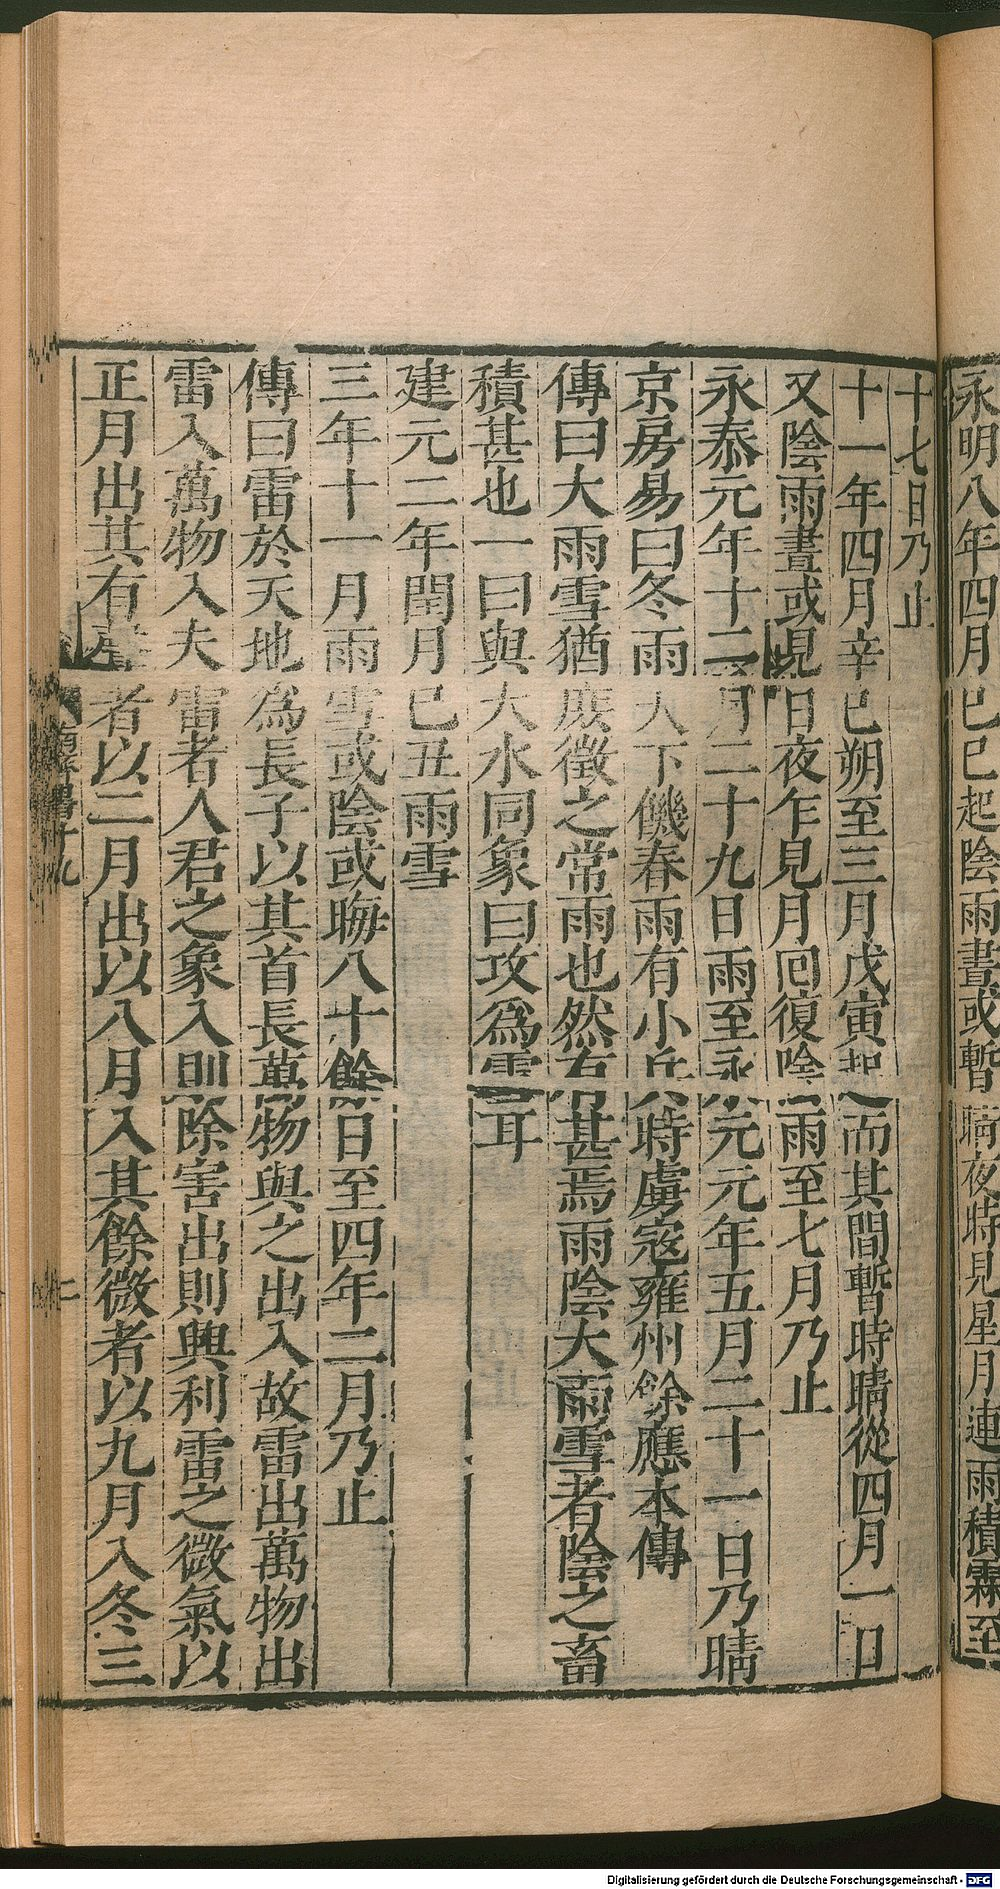 永明八年四月巳巳起陰雨晝或暫晴夜時見星月連雨積霖至
十七日乃止
十一年四月辛巳朔至三月戊寅起而其間暫時晴從四月一日
又陰雨晝或見日夜乍見月囘復陰雨至七月乃止
永泰元年十二月二十九日雨至永元元年五月二十一日乃晴
京房易曰冬雨天下饑春雨有小兵時虜寇雍州餘應本傳
傳曰大雨雪猶庶徵之常雨也然有甚焉雨陰大雨雪者陰之畜
積甚也一曰與大水同象曰攻爲雪耳
建元二年閏月巳丑雨雪
三年十一月雨雪或陰或晦八十餘日至四年二月乃止
傳曰雷於天地爲長子以其首長萬物與之出入故雷出萬物出
雷入萬物入夫雷者人君之象入則除害出則興利雷之微氣以
正月出其有聲者以二月出以八月入其餘微者以九月入冬三
南齊書十九
二
Digitalisierung gefördert durch die Deutsche Forschungsgemeinschaft - DFG